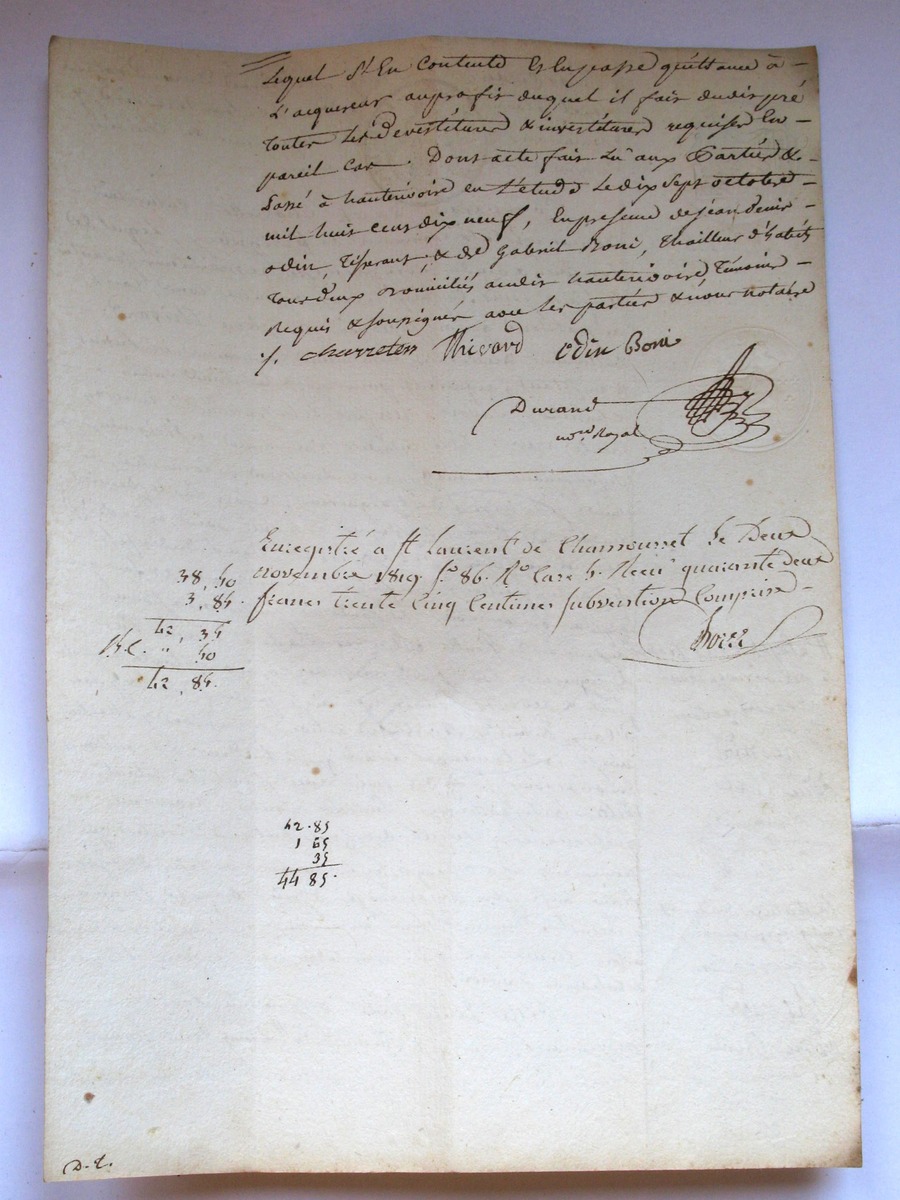 Lequel s'En Contente Et En passe quittance à -
L'acquereur au profit duquel il fait dudit pré
toutes Les devestitures & investitures requises En -
pareil Cas. Dont acte fait Lu aux Parties &.
Passé à hauterivoire en L'étude Le dix Sept octobre -
mil huit Cent dix neuf, En presence de jean denis
odin, Tisserant, & de Gabriel Boni, Thailleur d'habits
Tous deux Domiciliés audit hauterivoire, Témoins -
Requis & soussignés avec les parties & nous notaire
/. charreton Thivard odin Boni
Durand
no.re Royal
Enregistré a St Laurent de Chamousset le Deux
novembre 1819 f.o 86. R.o Case 5. Recu quarante deux
francs trente Cinq Centimes Subvention Comprise -
38 50
3, 85.
42, 35
" 50
42, 85.
42.85
1 65
35
44 85.
D. L.